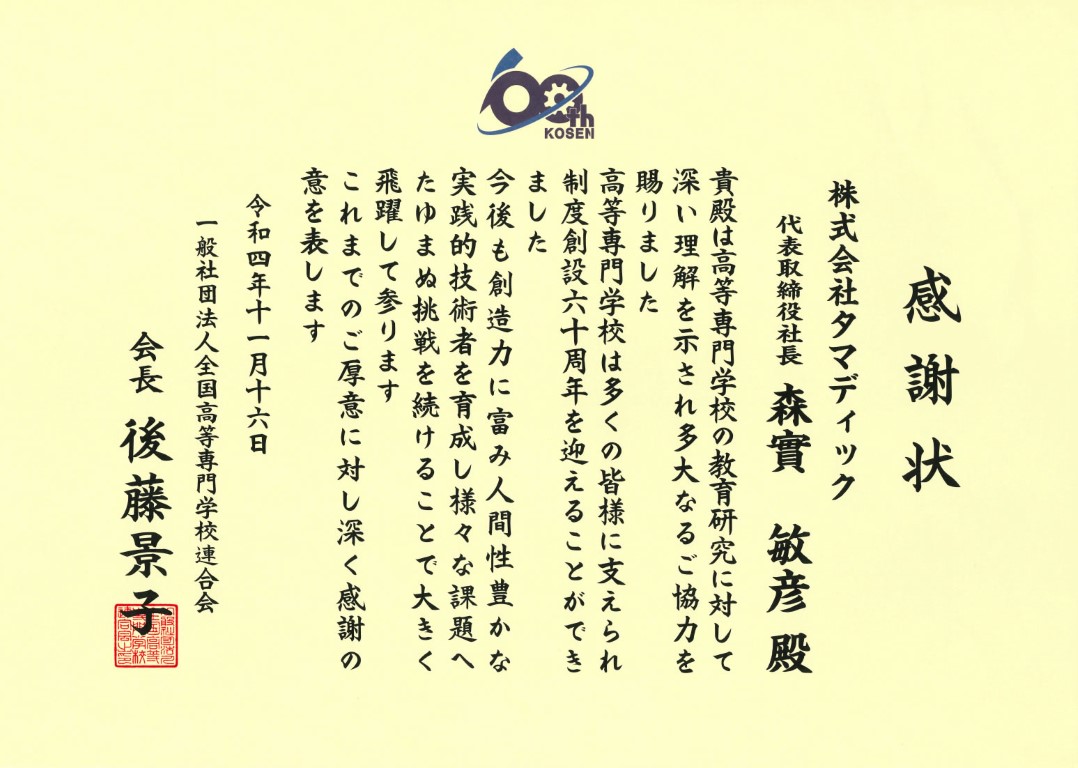 60th
KOSEN
感謝状
株式会社タマディック
代表取締役社長 森實 敏彦 殿
貴殿は高等専門学校の教育研究に対して
深い理解を示され多大なるご協力を
賜りました
高等専門学校は多くの皆様に支えられ
制度創設六十周年を迎えることができ
ました
今後も創造力に富み人間性豊かな
実践的技術者を育成し様々な課題へ
たゆまぬ挑戦を続けることで大きく
飛躍して参ります
これまでのご厚意に対し深く感謝の
意を表します
令和四年十一月十六日
一般社団法人全国高等専門学校連合会
会長 後藤景子